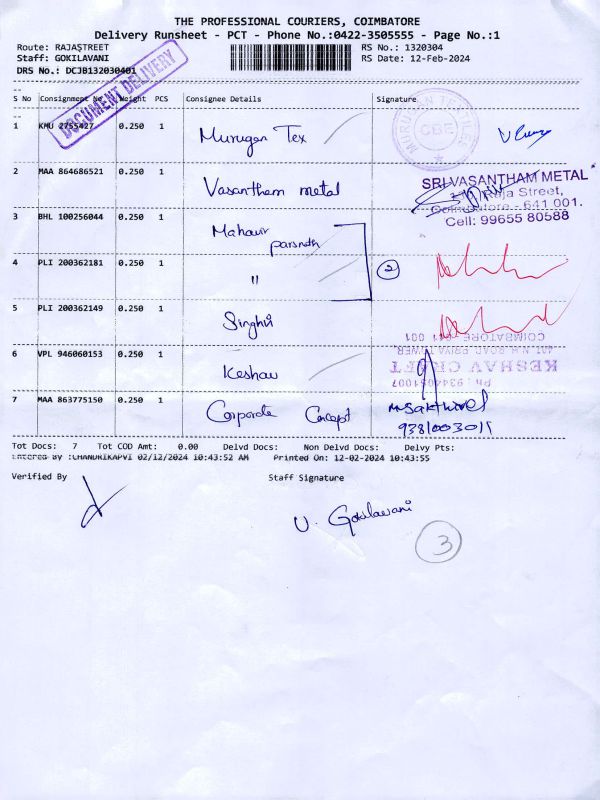 THE PROFESSIONAL COURIERS, COIMBATORE
Delivery Runsheet - PCT - Phone No.:0422-3505555 - Page No.:1
Route: RAJASTREET
RS No.: 1320304
Staff: GOKILAVANI
RS Date: 12-Feb-2024
DRS No.: DCJB132030401
DOCUMENT DELIVERY
S No Consignment No Weight PCS Consignee Details Signature
1 KMU 2755427 0.250 1 Murugan Tex
MURUGAN TEXTILES
CBE
2 MAA 864686521 0.250 1 Vasantham metal
SRI VASANTHAM METAL
Raja Street,
Coimbatore - 641 001.
Cell: 99655 80588
3 BHL 100256044 0.250 1 Mahavir
parsnath
4 PLI 200362181 0.250 1 "
2
5 PLI 200362149 0.250 1 Singhvi
6 VPL 946060153 0.250 1 Keshav
COIMBATORE 641 001
KESHAV
7 MAA 863775150 0.250 1 Corporate Concept
M. Sakthivel
9381003011
Tot Docs: 7 Tot COD Amt: 0.00 Delvd Docs: Non Delvd Docs: Delvy Pts:
Entered By :CHANDRIKAPVI 02/12/2024 10:43:52 AM Printed On: 12-02-2024 10:43:55
Verified By Staff Signature
U. Gokilavani
3